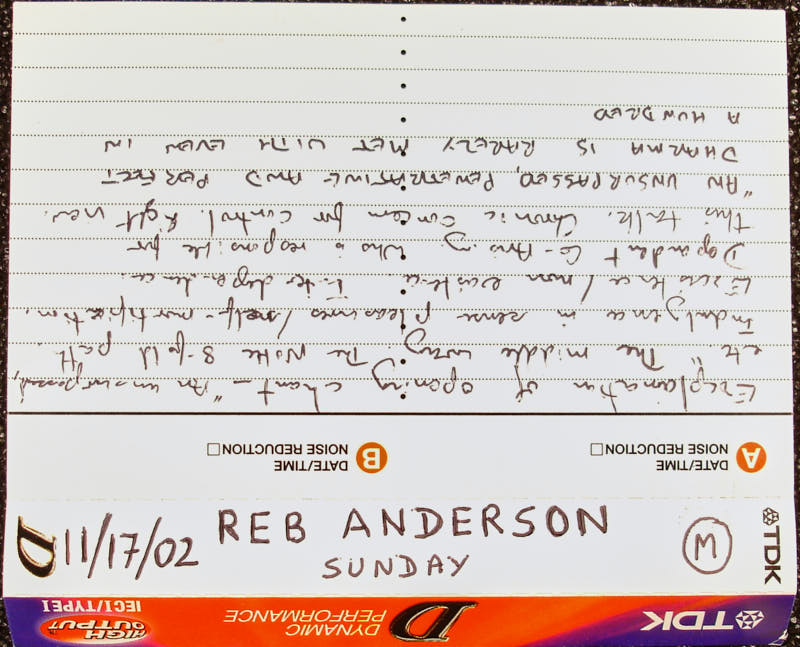 TDK D DYNAMIC PERFORMANCE HIGH OUTPUT IECI/TYPEI
D 11/17/02 REB ANDERSON M TDK
SUNDAY
A DATE/TIME B DATE/TIME
NOISE REDUCTION NOISE REDUCTION
Explaination of opening chant - "An unsurpassed,
etc" The middle way. The Noble 8-fold path.
Indulgence in sense pleasures / self-mortification.
Existence / non existence. Interdependence.
Dependent Co-Arising Who is responsible for
this talk. Chronic concern for control. Right view.
"AN UNSURPASSED, PENETRATING AND PERFECT
DHARMA IS RARELY MET WITH EVEN IN
A HUNDRED